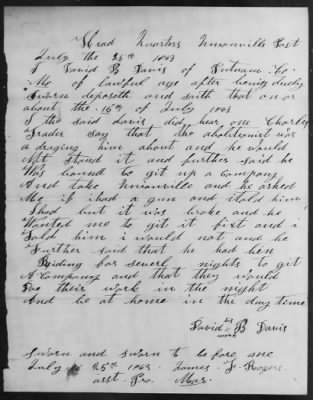 Head Quarters Unionville Post
July the 25th 1863
I David B Davis of Putnam Co
Mo of lawful age after being duley
Sworn deposeth and saith that on or
about the 15th of July 1863
I the said Davis did hear one Charles
Trader say that the abolitionist was
a draging him about and he would
Not Stand it and further said he
Was bound to git up a Company
And take Unionville and he asked
Me if i had a gun and i told him
I had but it was broke and he
Wanted me to git it fixt and i
Told him i would not and he
Further said that he had ben
Riding for severl nights to git
A Company and that they would
Doe their work in the night
And be at home in the day time
his
David x B Davis
mark
Sworn and sworn to before me
July 25th 1863 James F. Rogers
asst. Pro. Mar.